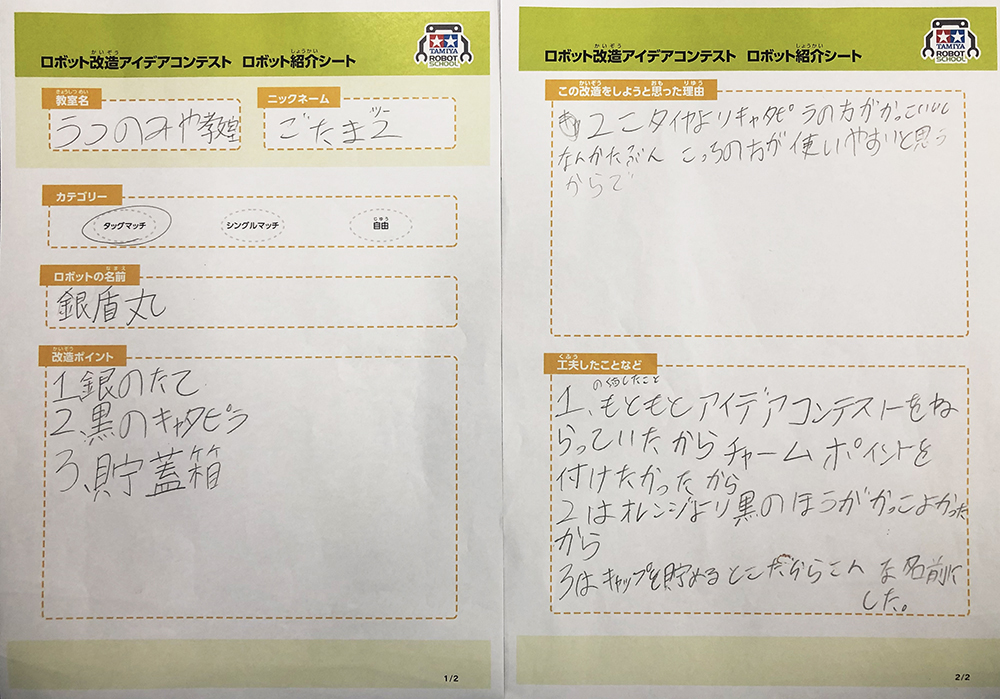 かいぞう しょうかい
ロボット改造アイデアコンテスト ロボット紹介シート
TAMIYA
ROBOT
SCHOOL
きょうしつめい
教室名
うつのみや教室
ニックネーム
ツー
ごたま2
カテゴリー
タッグマッチ
シングルマッチ
じゆう
自由
なまえ
ロボットの名前
銀盾丸
かいぞう
改造ポイント
1、銀のたて
2、黒のキャタピラ
3、貯蓋箱
1/2
かいぞう しょうかい
ロボット改造アイデアコンテスト ロボット紹介シート
TAMIYA
ROBOT
SCHOOL
かいぞう おも りゆう
この改造をしようと思った理由
2こタイヤよりキャタピラの方がかっこいいし
なんかたぶん こっちの方が使いやすいと思う
からで
くふう
工夫したことなど
のくふうしたこと
1、もともとアイデアコンテストをね
らっていたからチャームポイントを
付けたかったから
2はオレンジより黒のほうがかっこよかった
から
3はキャップを貯めるとこだからこんな名前に
した。
2/2